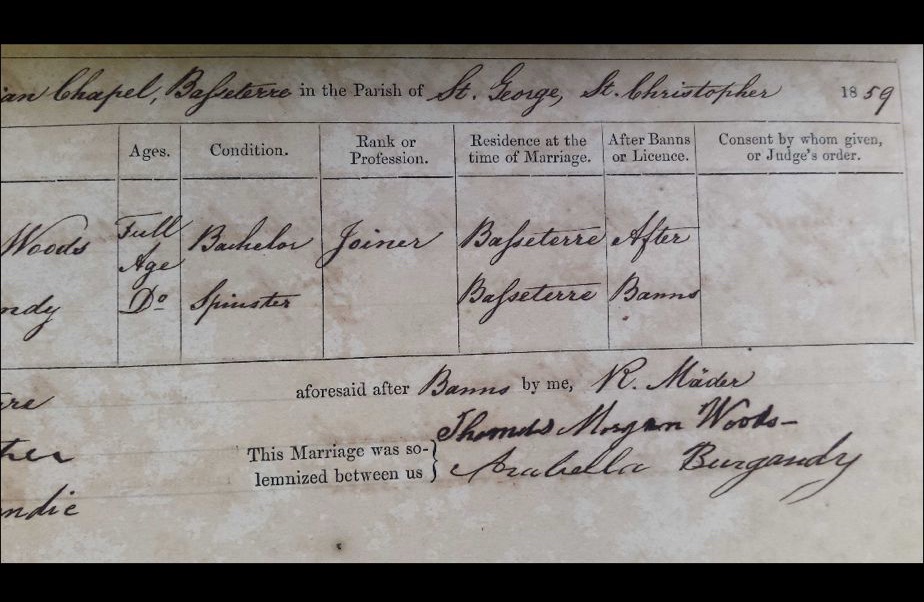 an Chapel, Basseterre in the Parish of St. George, St. Christopher 1859
Ages. Condition. Rank or Profession. Residence at the time of Marriage. After Banns or Licence. Consent by whom given, or Judge's order.
Woods Full Age Bachelor Joiner Basseterre After
ndy Do Spinster Basseterre Banns
aforesaid after Banns by me, R. Mäder
re
Thomas Morgan Woods-
ther This Marriage was so-
lemnized between us } Arabella Burgandy
ndie